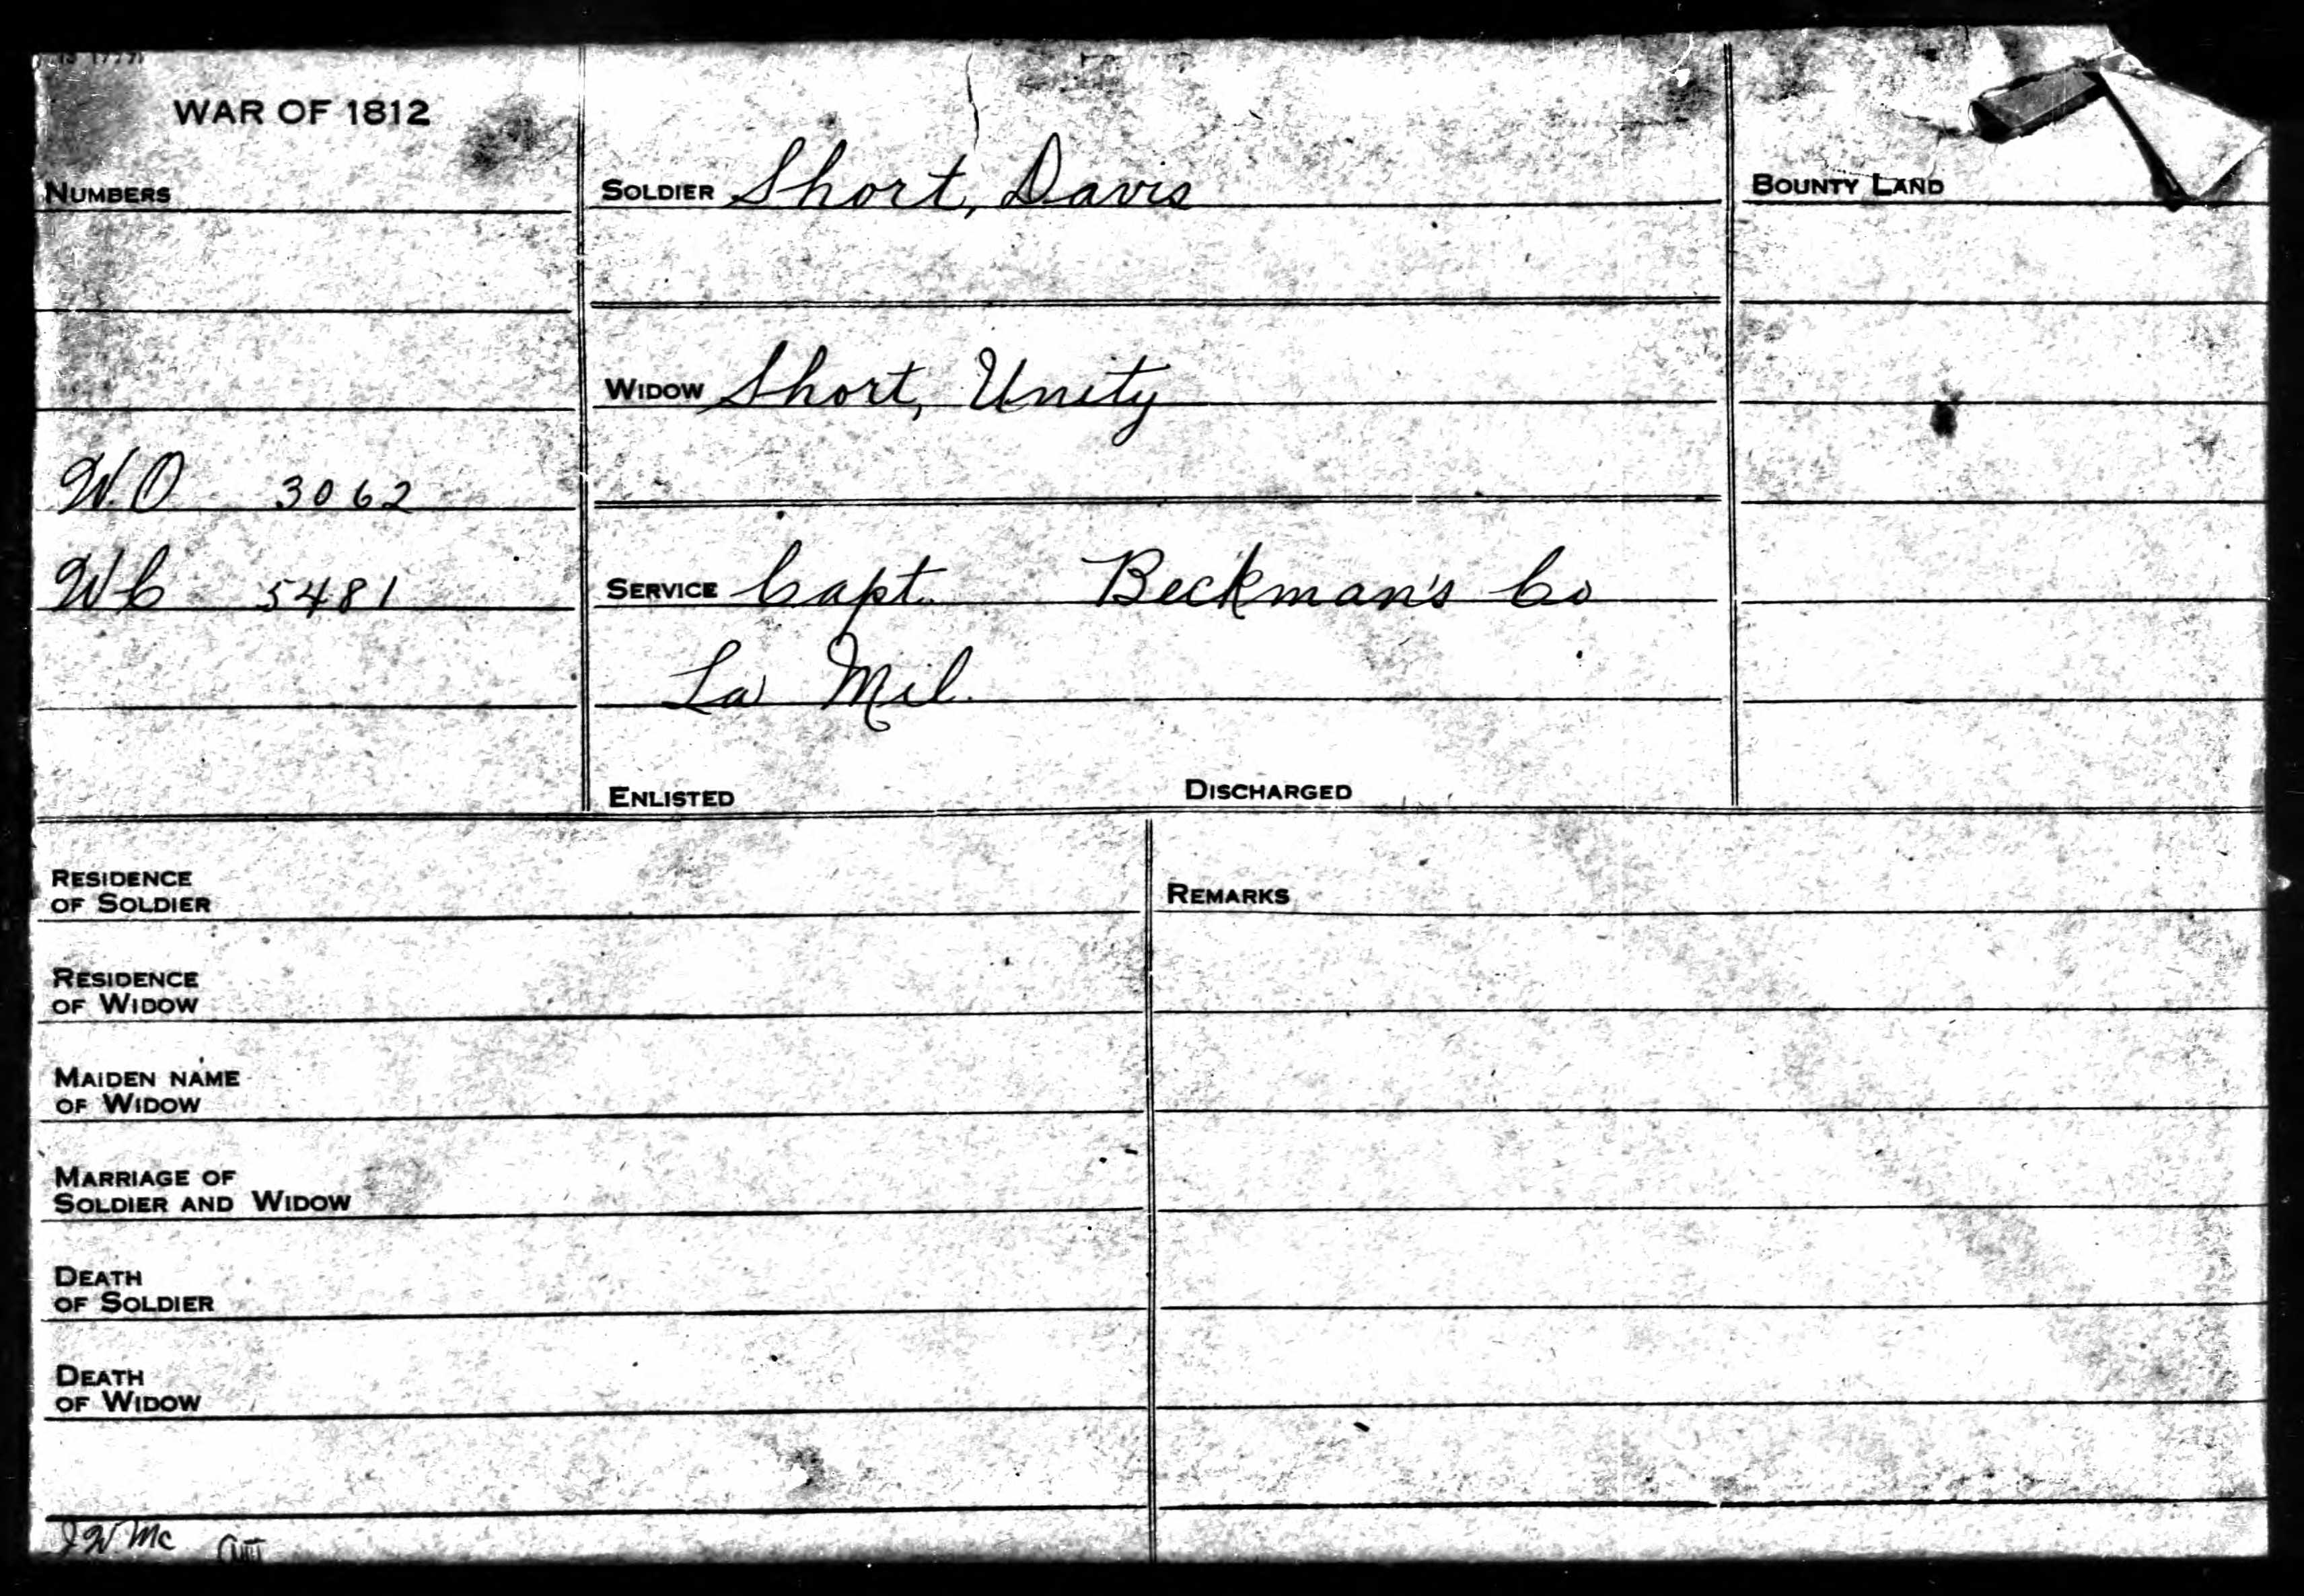 WAR OF 1812
NUMBERS
W.O 3062
WC 5481
SOLDIER Short, Davis
WIDOW Short, Unity
SERVICE Capt. Beckman's Co
La Mil.
ENLISTED DISCHARGED
BOUNTY LAND
RESIDENCE
OF SOLDIER
RESIDENCE
OF WIDOW
MAIDEN NAME
OF WIDOW
MARRIAGE OF
SOLDIER AND WIDOW
DEATH
OF SOLDIER
DEATH
OF WIDOW
REMARKS